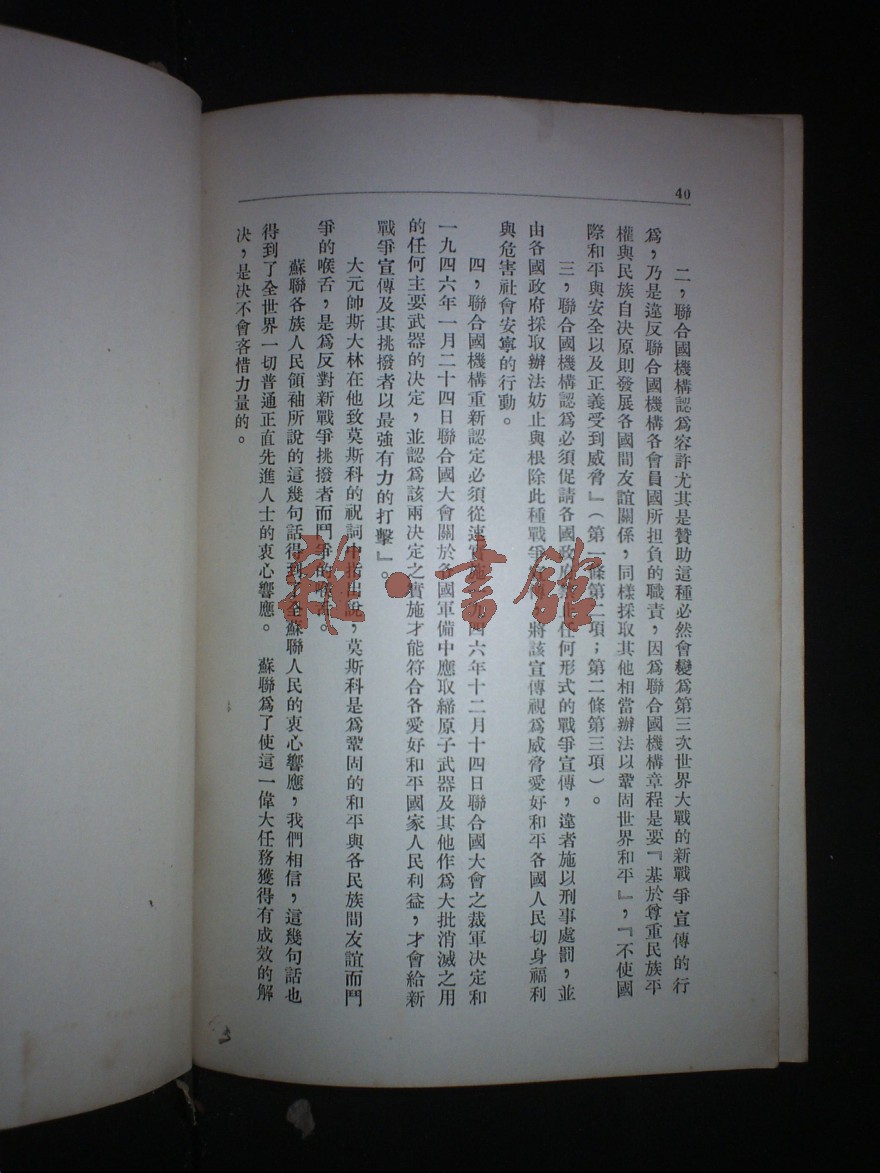 40
二，聯合國機構認爲容許尤其是贊助這種必然會變爲第三次世界大戰的新戰爭宣傳的行
爲，乃是違反聯合國機構各會員國所担負的職責，因爲聯合國機構章程是要『基於尊重民族平
權與民族自決原則發展各國間友誼關係，同樣採取其他相當辦法以鞏固世界和平』，『不使國
際和平與安全以及正義受到威脅』（第一條第二項；第二條第三項）。
三，聯合國機構認爲必須促請各國政府禁止任何形式的戰爭宣傳，違者施以刑事處罰，並
由各國政府採取辦法妨止與根除此種戰爭 將該宣傳視爲威脅愛好和平各國人民切身福利
與危害社會安寧的行動。
四，聯合國機構重新認定必須從速實施 四六年十二月十四日聯合國大會之裁軍决定和
一九四六年一月二十四日聯合國大會關於各國軍備中應取締原子武器及其他作爲大批消滅之用
的任何主要武器的决定，並認爲該兩决定之實施才能符合各愛好和平國家人民利益，才會給新
戰爭宣傳及其挑撥者以最強有力的打擊』。
大元帥斯大林在他致莫斯科的祝詞中指出說，莫斯科是爲鞏固的和平與各民族間友誼而鬥
爭的喉舌，是爲反對新戰爭挑撥者而鬥爭的喉舌。
蘇聯各族人民領袖所說的這幾句話得到了全蘇聯人民的衷心響應，我們相信，這幾句話也
得到了全世界一切普通正直先進人士的衷心響應。 蘇聯爲了使這一偉大任務獲得有成效的解
决，是决不會吝惜力量的。
雜·書館